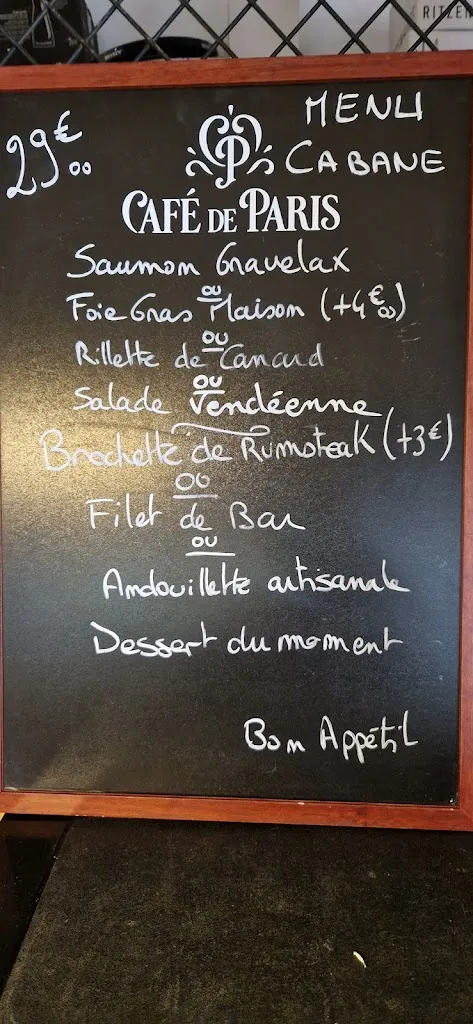 RITZEN
29€00
MENU
CABANE
CP
CAFÉ DE PARIS
Saumon Gravelax
ou
Foie Gras Maison (+4€00)
ou
Rillette de Canard
ou
Salade Vendéenne
Brochette de Rumsteak (+3€)
ou
Filet de Bar
ou
Andouillette artisanale
Dessert du moment
Bon Appétit